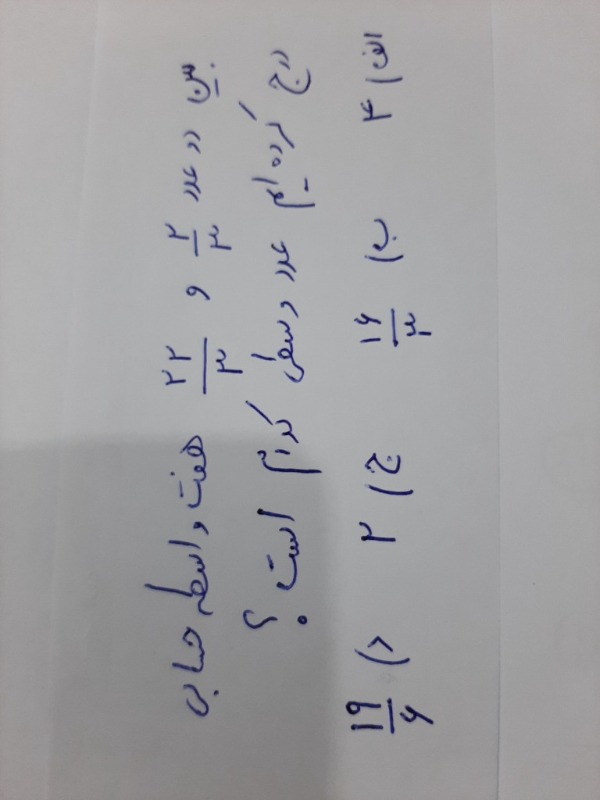 بین دو عدد ۲/۳ و ۲۲/۳ هفت واسطه حسابی
درج عدد وسطی کدام است ؟
الف) ۴ ب) ۱۶/۳ ج) ۲ د) ۱۹/۶